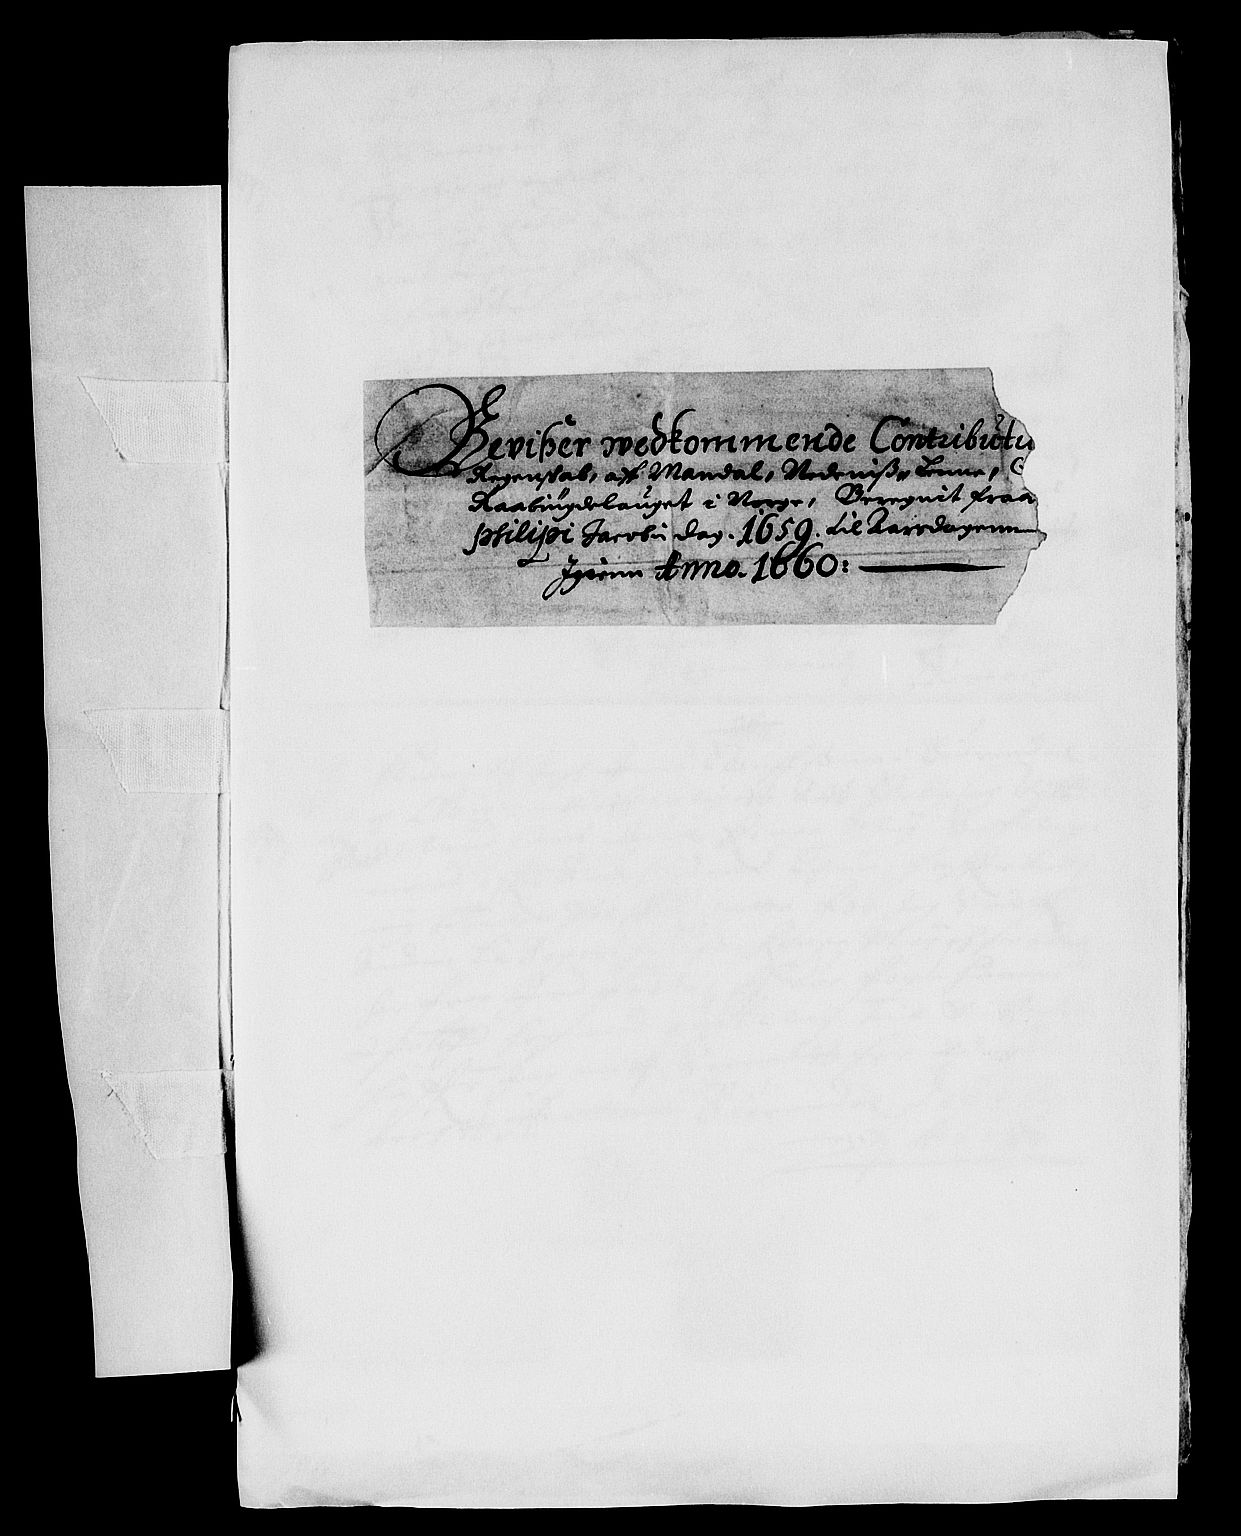 Bevißer wedkommende Contributu
Regenskab, aff Mandal, Nedeniß, Lenne,
Raabÿgdelauget i Norge, Beregnit fraa
Philipi Jacobi dag. 1659. til Aarsdagenn
Igienn Anno. 1660: